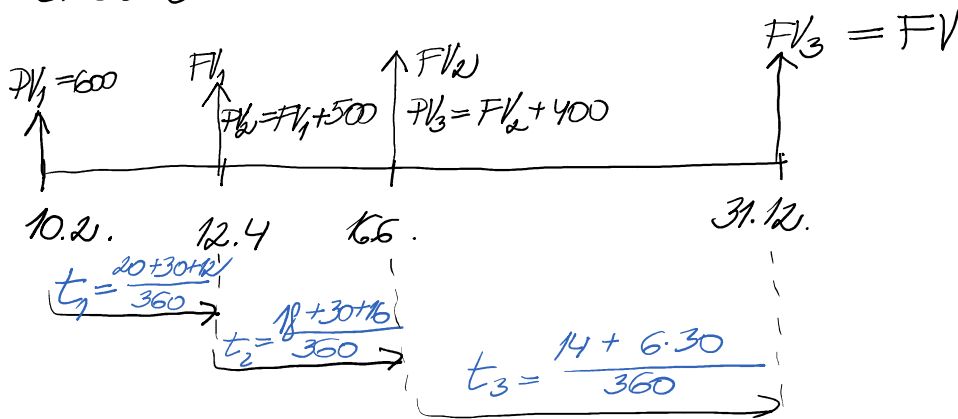 FV₃ = FV
PV₁ = 600
FV₁
FV₂
PV₂ = FV₁ + 500
PV₃ = FV₂ + 400
10.2.
12.4
16.6.
31.12.
t₁ = (20+30+12)/360
t₂ = (18+30+16)/360
t₃ = (14 + 6·30)/360